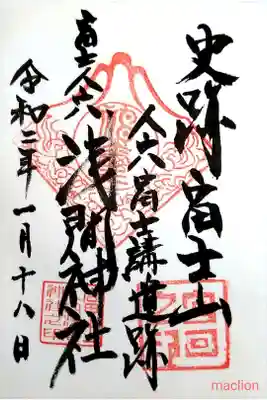 史跡富士山
人穴富士講遺跡
富士人穴浅間神社
令和二年一月十八日
maclion